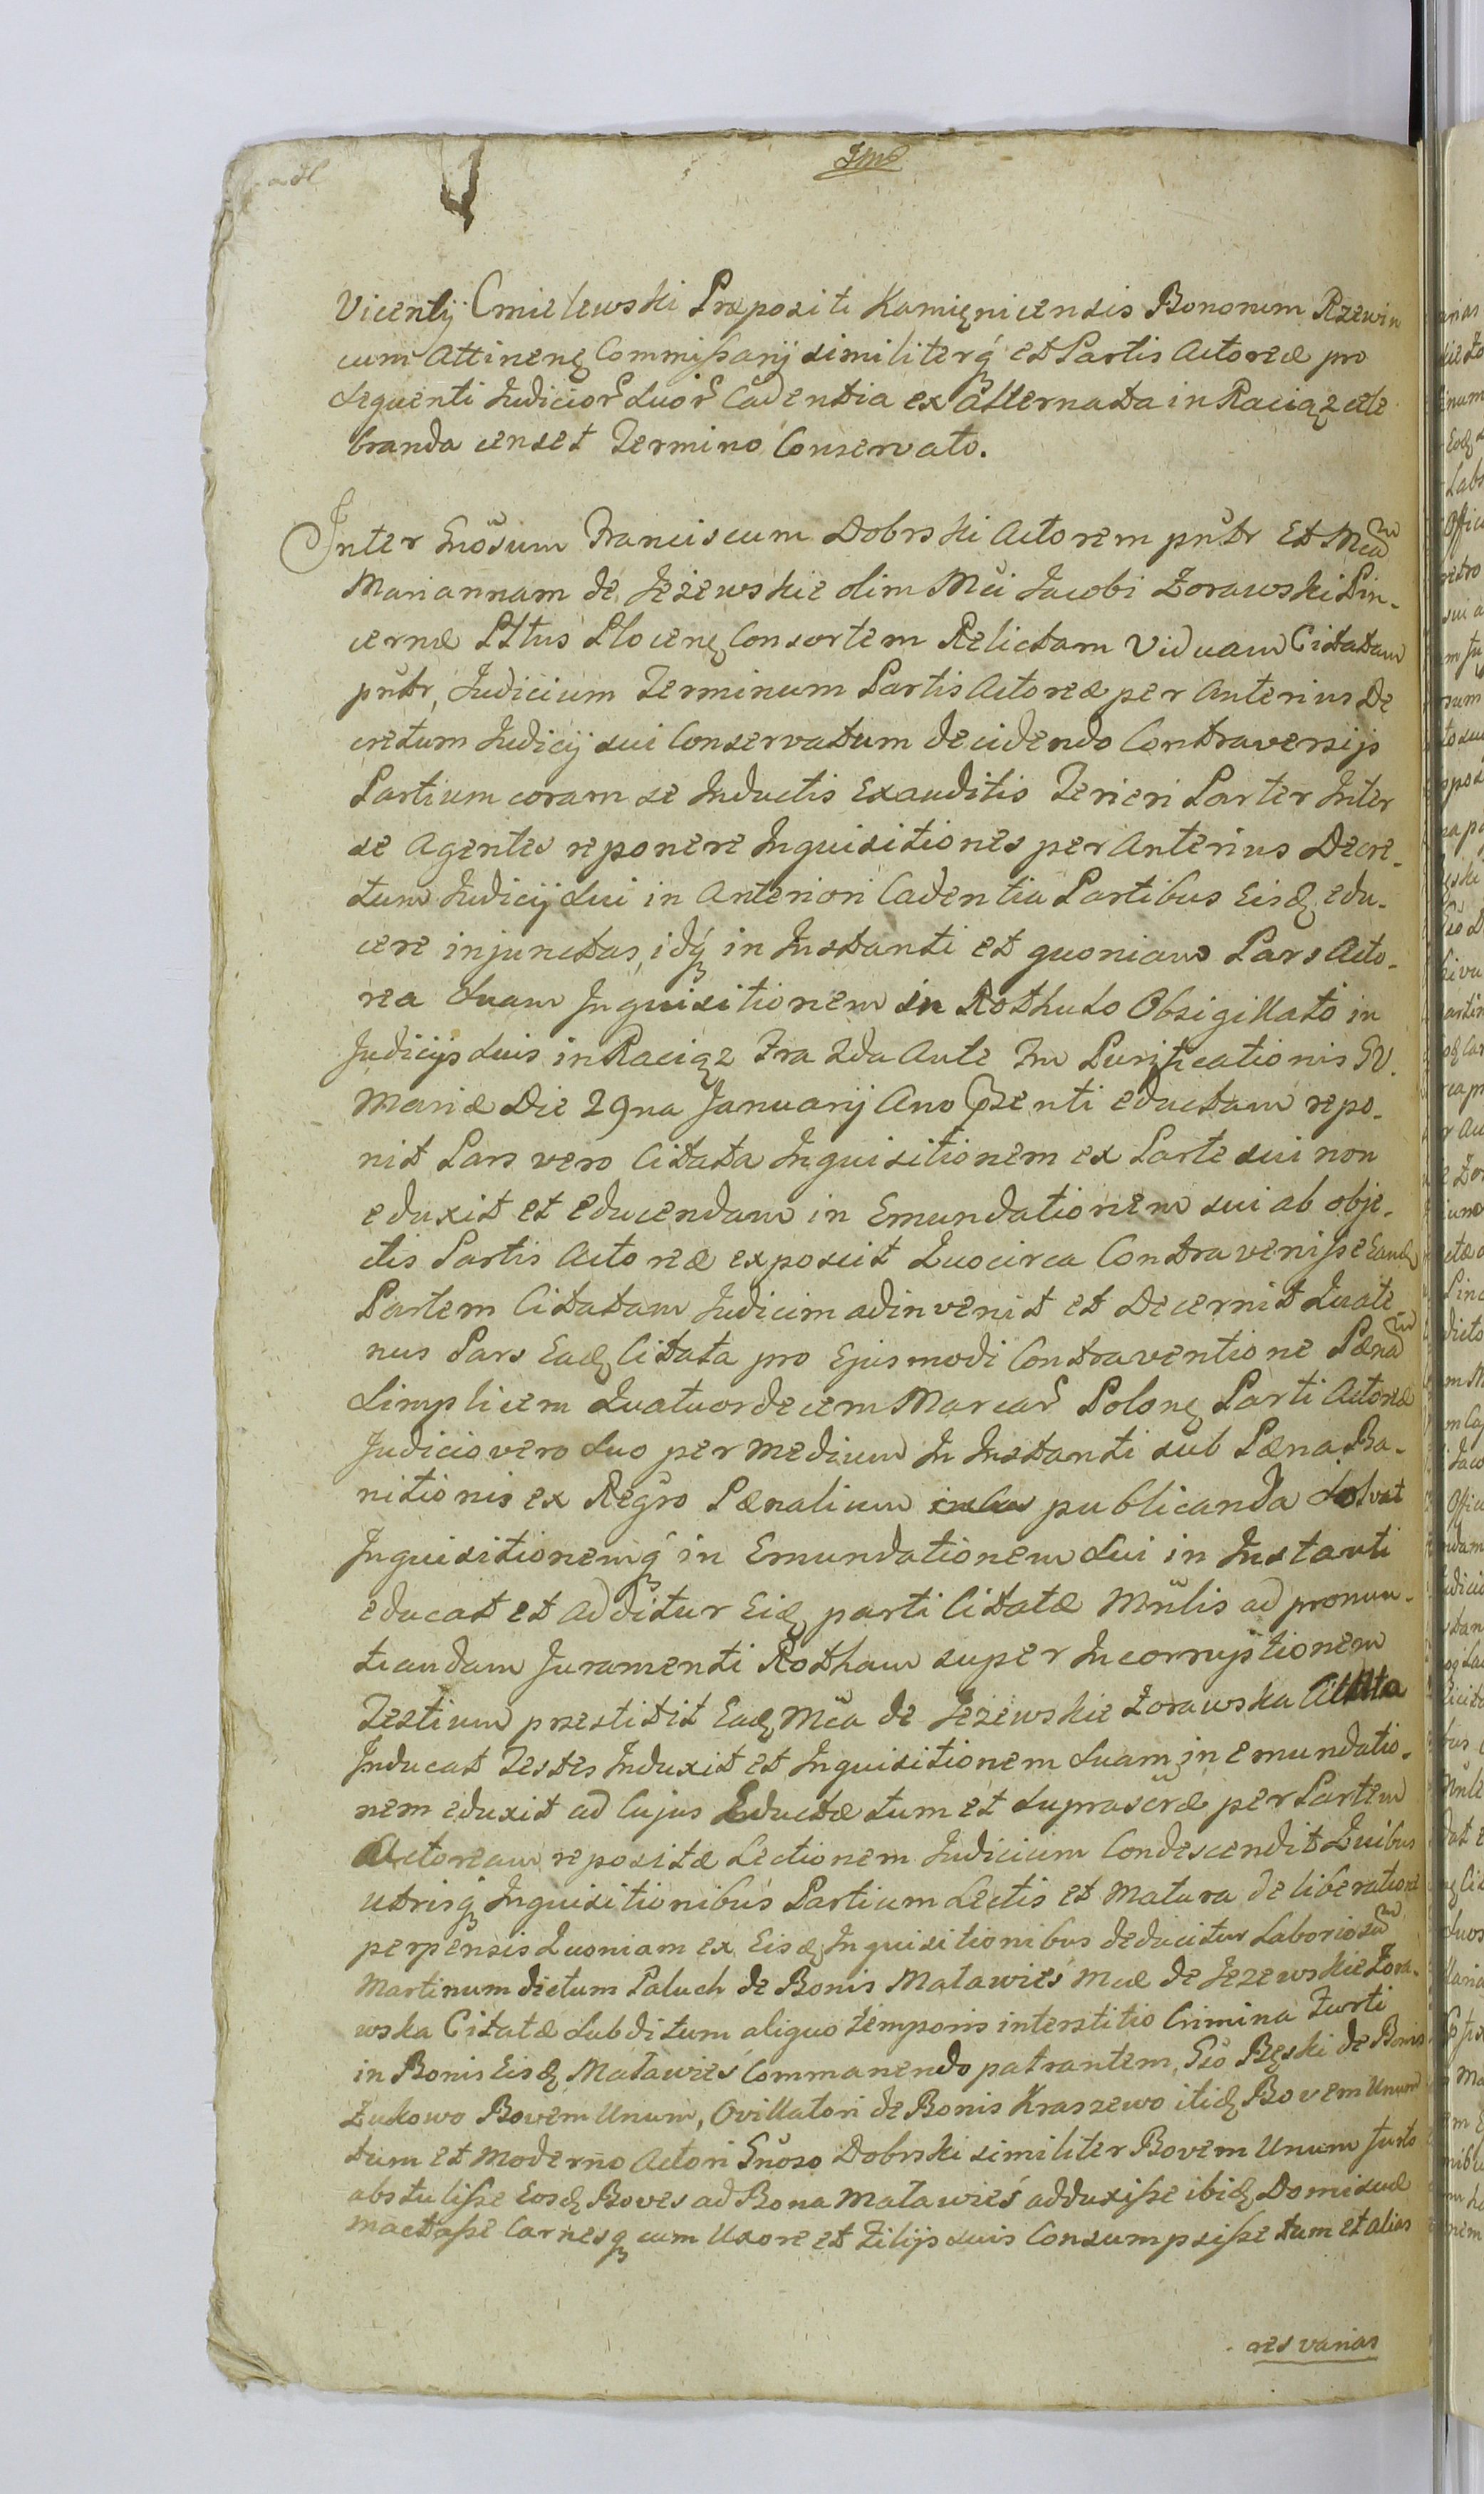 Vicentij Cmielewski Præpositi Kamięnicensis Bonorum Rzewin
cum Attinenȩ Commissarij similiterq́ et Partis Actoreæ pro
sequenti Judicior̃ suor̃ Cadentia ex Alternata in Raciąz cele
branda censet Termino Conservato.
Inter Gnõsum Franciscum Dobrski Actorem pñtr Et Mcã
Mariannam de Jeżewskie olim Mci Jacobi Żorawski Pin-
cernæ Pltus Plocenȩ Consortem Relictam Viduam Citatam
pñtr, Judicium Terminum Partis Actoreæ per Anterius De
cretum Judicij sui Conservatum decidendo Contraversijs
Partium coram se Inductis Exauditis Terieri Partes Inter
se Agentes reponere Inquisitiones per Anterius Decre-
tum Judicij sui in Anteriori Cadentia Partibus Eisd̨ edu-
cere injunctas, idq́ in Instanti et quoniam Pars Acto-
rea suam Inquisitionem in Rothulo Obsigillato in
Judicijs suis in Raciąz Fra 2da Ante Fm Purificationis BV.
Mariæ Die 29na Januarij Ano Præsenti eductam repo-
nit Pars vero Citata Inquisitionem ex Parte sui non
eduxit et educendam in Emundationem sui ab obje-
ctis Partis Actoreæ exposcit Quocirca Contravenisse Eand̨
Partem Citatam Judicim adinvenit et Decernit Quate-
nus Pars Ead̨ Citata pro Ejusmodi Contraventione Pænã
Simplicem Quatuordecem Marcar̃ Polonȩ Parti Actoreæ
Judicio vero suo per Medium In Instanti sub Pæna Ba-
nitionis ex Regr̃o Pænalium publicanda solvat
Inquisitionemq́ in Emundationem sui in Instanti
educat et additur Eid̨ parti Citatæ Mn̄lis ad pronun-
tiandam Juramenti Rotham super Incorruptionem
Testium præstitit Ead̨ Mc̃a de Jeżewskie Żorawska Citata
Inducat Testes Induxit et Inquisitionem suam in emundatio-
nem eduxit ad Cujus Eductæ tum et suprascr̃æ per Partem
Actoream repositæ Lectionem Judicium Condescendit Quibus
utrisq́ Inquisitionibus Partium Lectis et Matura deliberatione
perpensis Quoniam ex Eisd̨ Inquisitionibus deducitur Laboriosũ
Martinum dictum Paluch de Bonis Matawieś Mcæ de Jeżewskie Żora-
wska Citatæ subditum aliquo temporis interstitio Crimina Furti
in Bonis Eisd̨ Matawieś Commanendo patrantem, Gẽo Bęski de Bonis
Żukowo Bovem Unum, Ovillatori de Bonis Kraszewo itid̨ Bovem Unum
tum et Moderno Actori Gñoso Dobrski similiter Bovem Unum furto
abstulisse Eosd̨ Boves ad Bona Matawieś adduxisse ibid̨ Domi suæ
mactasse Carnesq́ cum Uxore et Filijs suis Consumpsisse tum et alias
res varias